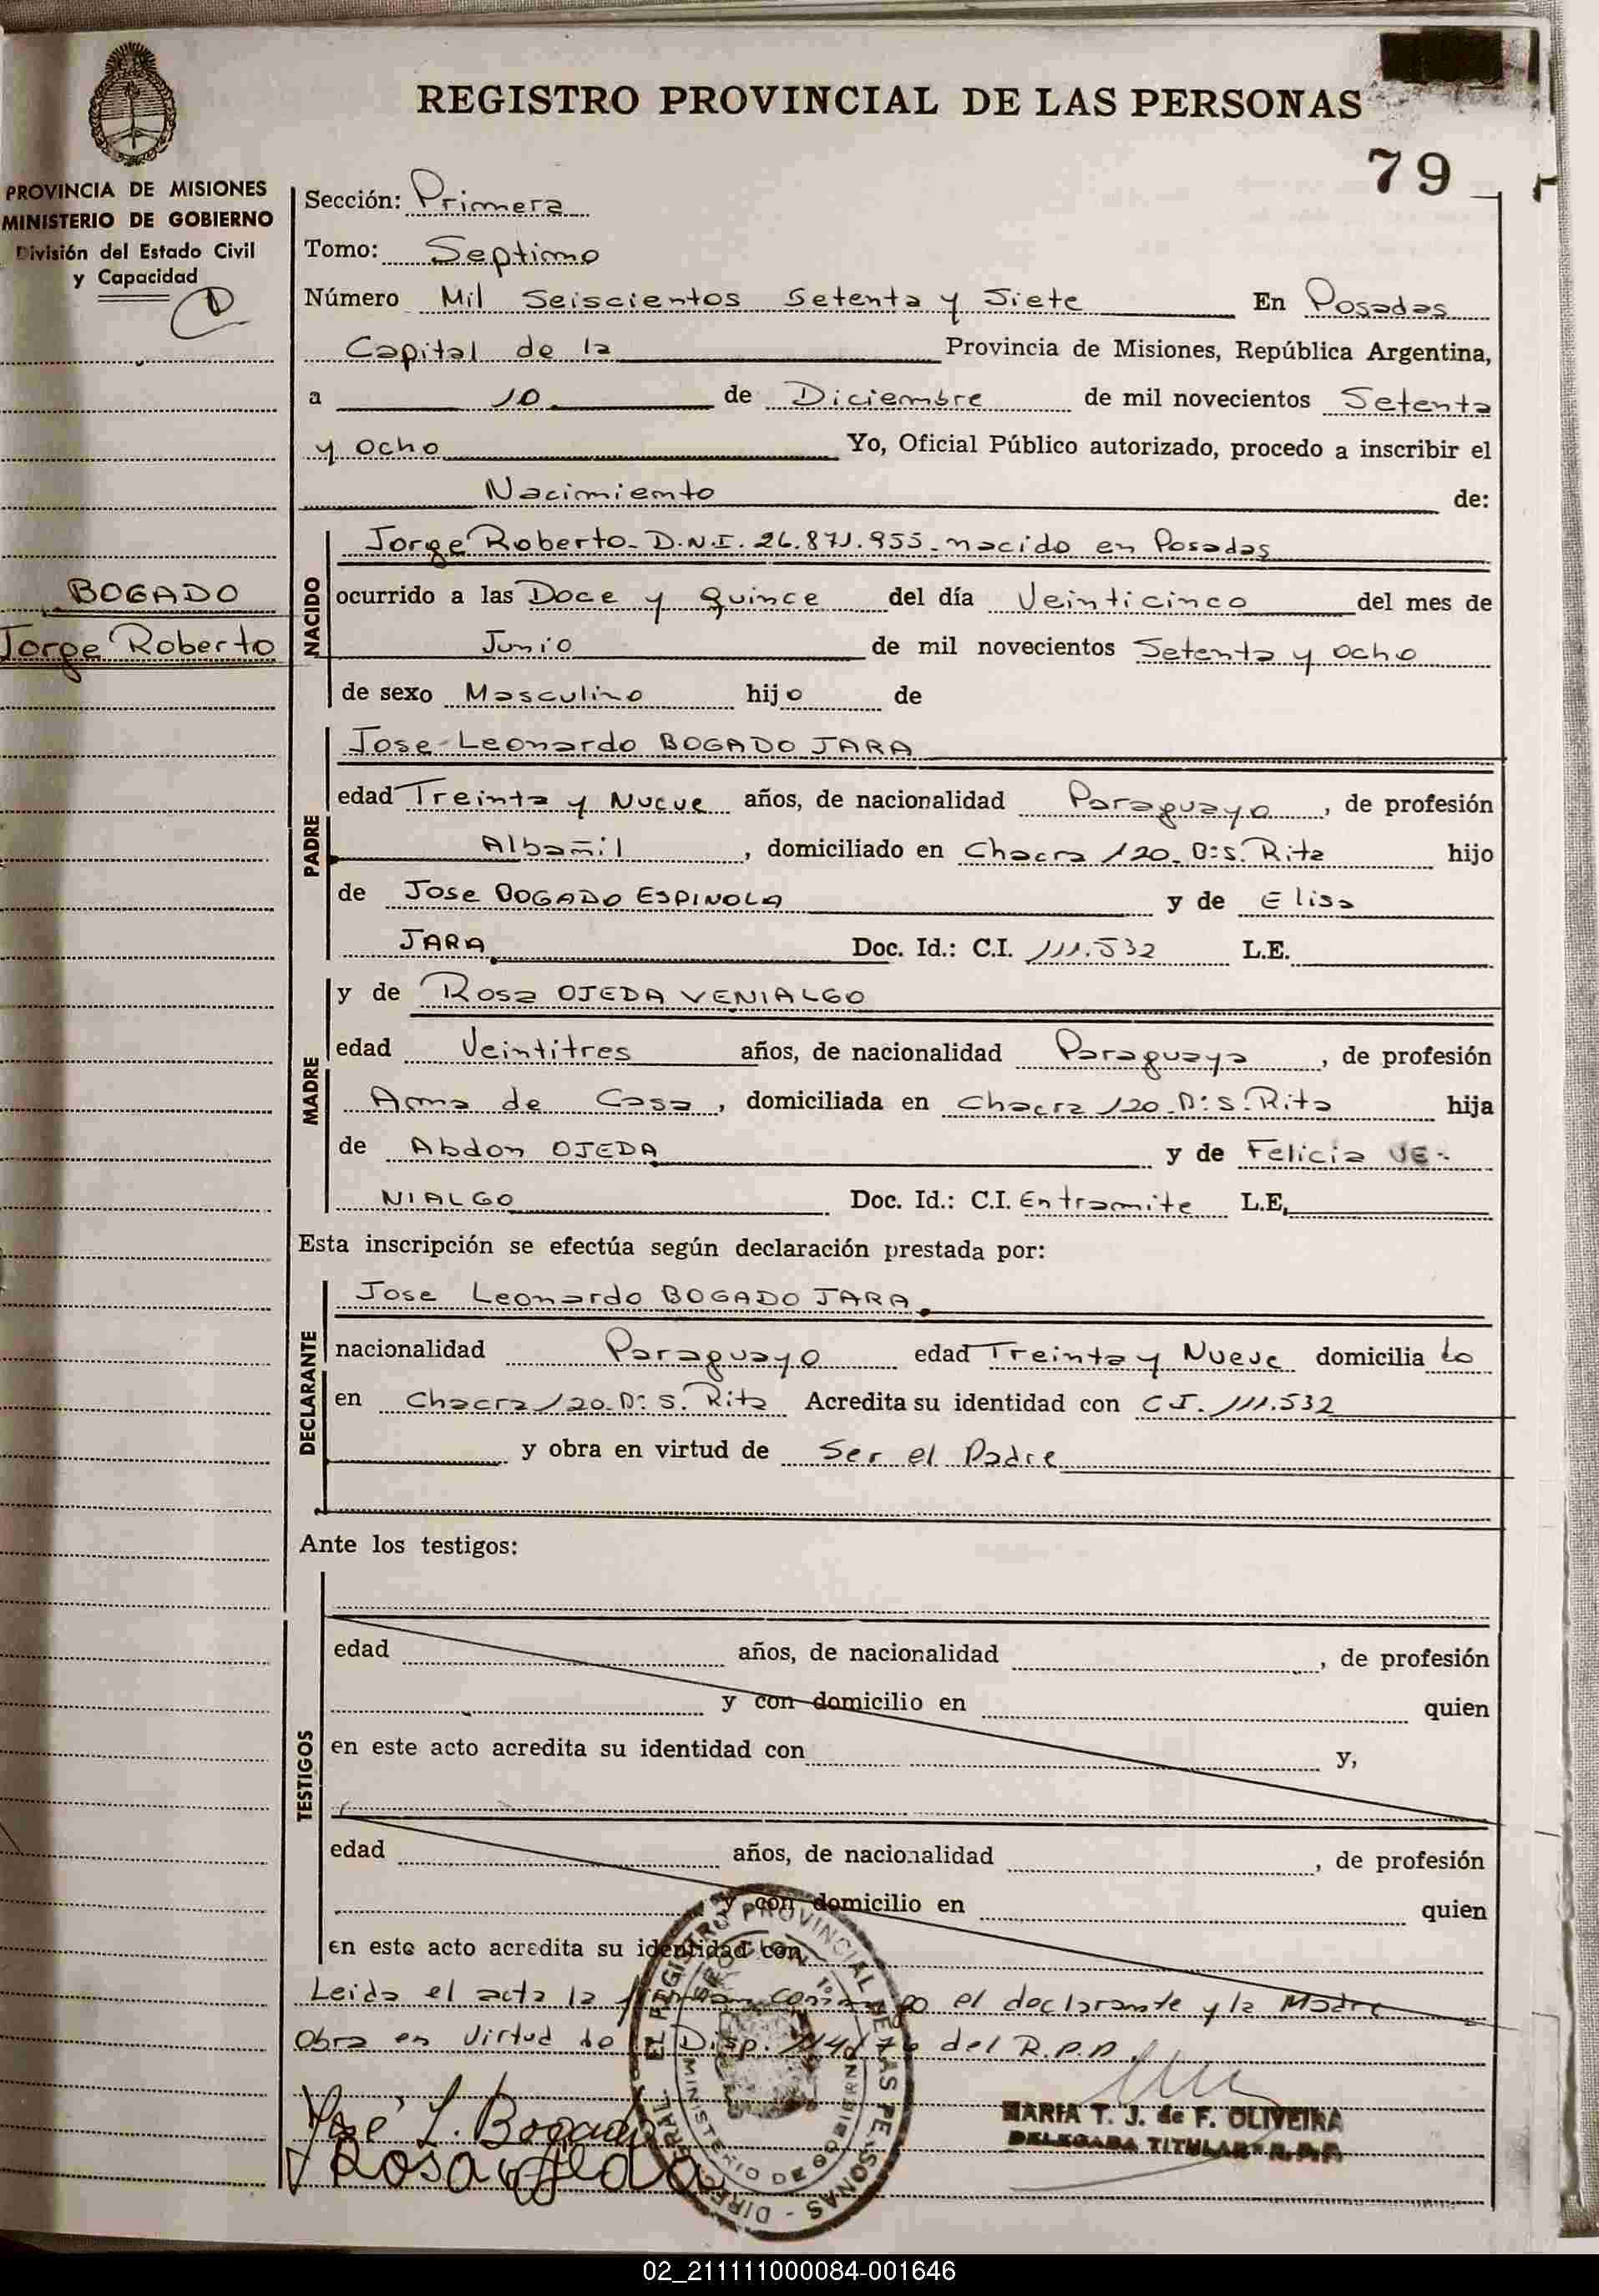 REGISTRO PROVINCIAL DE LAS PERSONAS
79
PROVINCIA DE MISIONES
MINISTERIO DE GOBIERNO
División del Estado Civil
y Capacidad
Sección: Primera
Tomo: Septimo
Número Mil Seiscientos Setenta y Siete En Posadas
Capital de la Provincia de Misiones, República Argentina,
a 10 de Diciembre de mil novecientos Setenta
y Ocho Yo, Oficial Público autorizado, procedo a inscribir el
Nacimiento de:
BOGADO
Jorge Roberto
NACIDO
Jorge Roberto - D.N.I. 26.871.955 - nacido en Posadas
ocurrido a las Doce y Quince del día Veinticinco del mes de
Junio de mil novecientos Setenta y Ocho
de sexo Masculino hijo de
PADRE
Jose Leonardo BOGADO JARA
edad Treinta y Nueve años, de nacionalidad Paraguayo, de profesión
Albañil, domiciliado en Chacra 120. B: S. Rita hijo
de Jose BOGADO ESPINOLA y de Elisa
JARA Doc. Id.: C.I. 111.532 L.E.
MADRE
y de Rosa OJEDA VENIALGO
edad Veintitres años, de nacionalidad Paraguaya, de profesión
Ama de Casa, domiciliada en Chacra 120. B: S. Rita hija
de Abdon OJEDA y de Felicia VE-
NIALGO Doc. Id.: C.I. En tramite L.E.
Esta inscripción se efectúa según declaración prestada por:
DECLARANTE
Jose Leonardo BOGADO JARA
nacionalidad Paraguayo edad Treinta y Nueve domicilia do
en Chacra 120. B: S. Rita Acredita su identidad con C.I. 111.532
y obra en virtud de Ser el Padre
Ante los testigos:
TESTIGOS
edad años, de nacionalidad , de profesión
y con domicilio en quien
en este acto acredita su identidad con y,
edad años, de nacionalidad , de profesión
y con domicilio en quien
en este acto acredita su identidad con
Leida el acta la firman conmigo el declarante y la Madre
Obra en Virtud de Disp. del R.P.P.
José L. Bogado
Rosa Ojeda
REGISTRO PROVINCIAL DE LAS PERSONAS - DIREC
MINISTERIO DE GOBIERNO
MARIA T. J. de F. OLIVEIRA
DELEGADA TITULAR R.P.P.
02_211111000084-001646